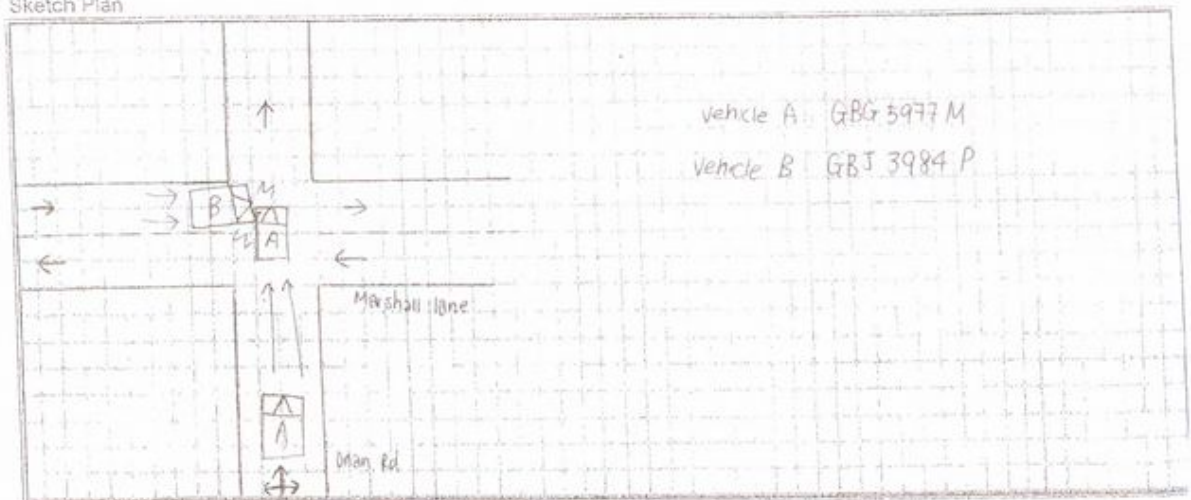 Sketch Plan
Vehicle A GBG 5977 M
Vehicle B GBJ 3984 P
B
A
Marshall lane
A
Rd